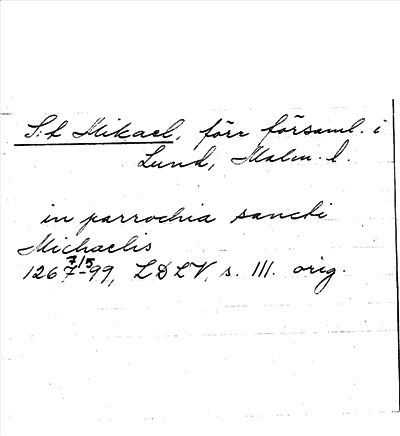 S:t Mikael, förr församl. i
Lund, Malm. l.
in parrochia sancti
Michaelis
1267 7/5-99, LDLV, s. 111. orig.